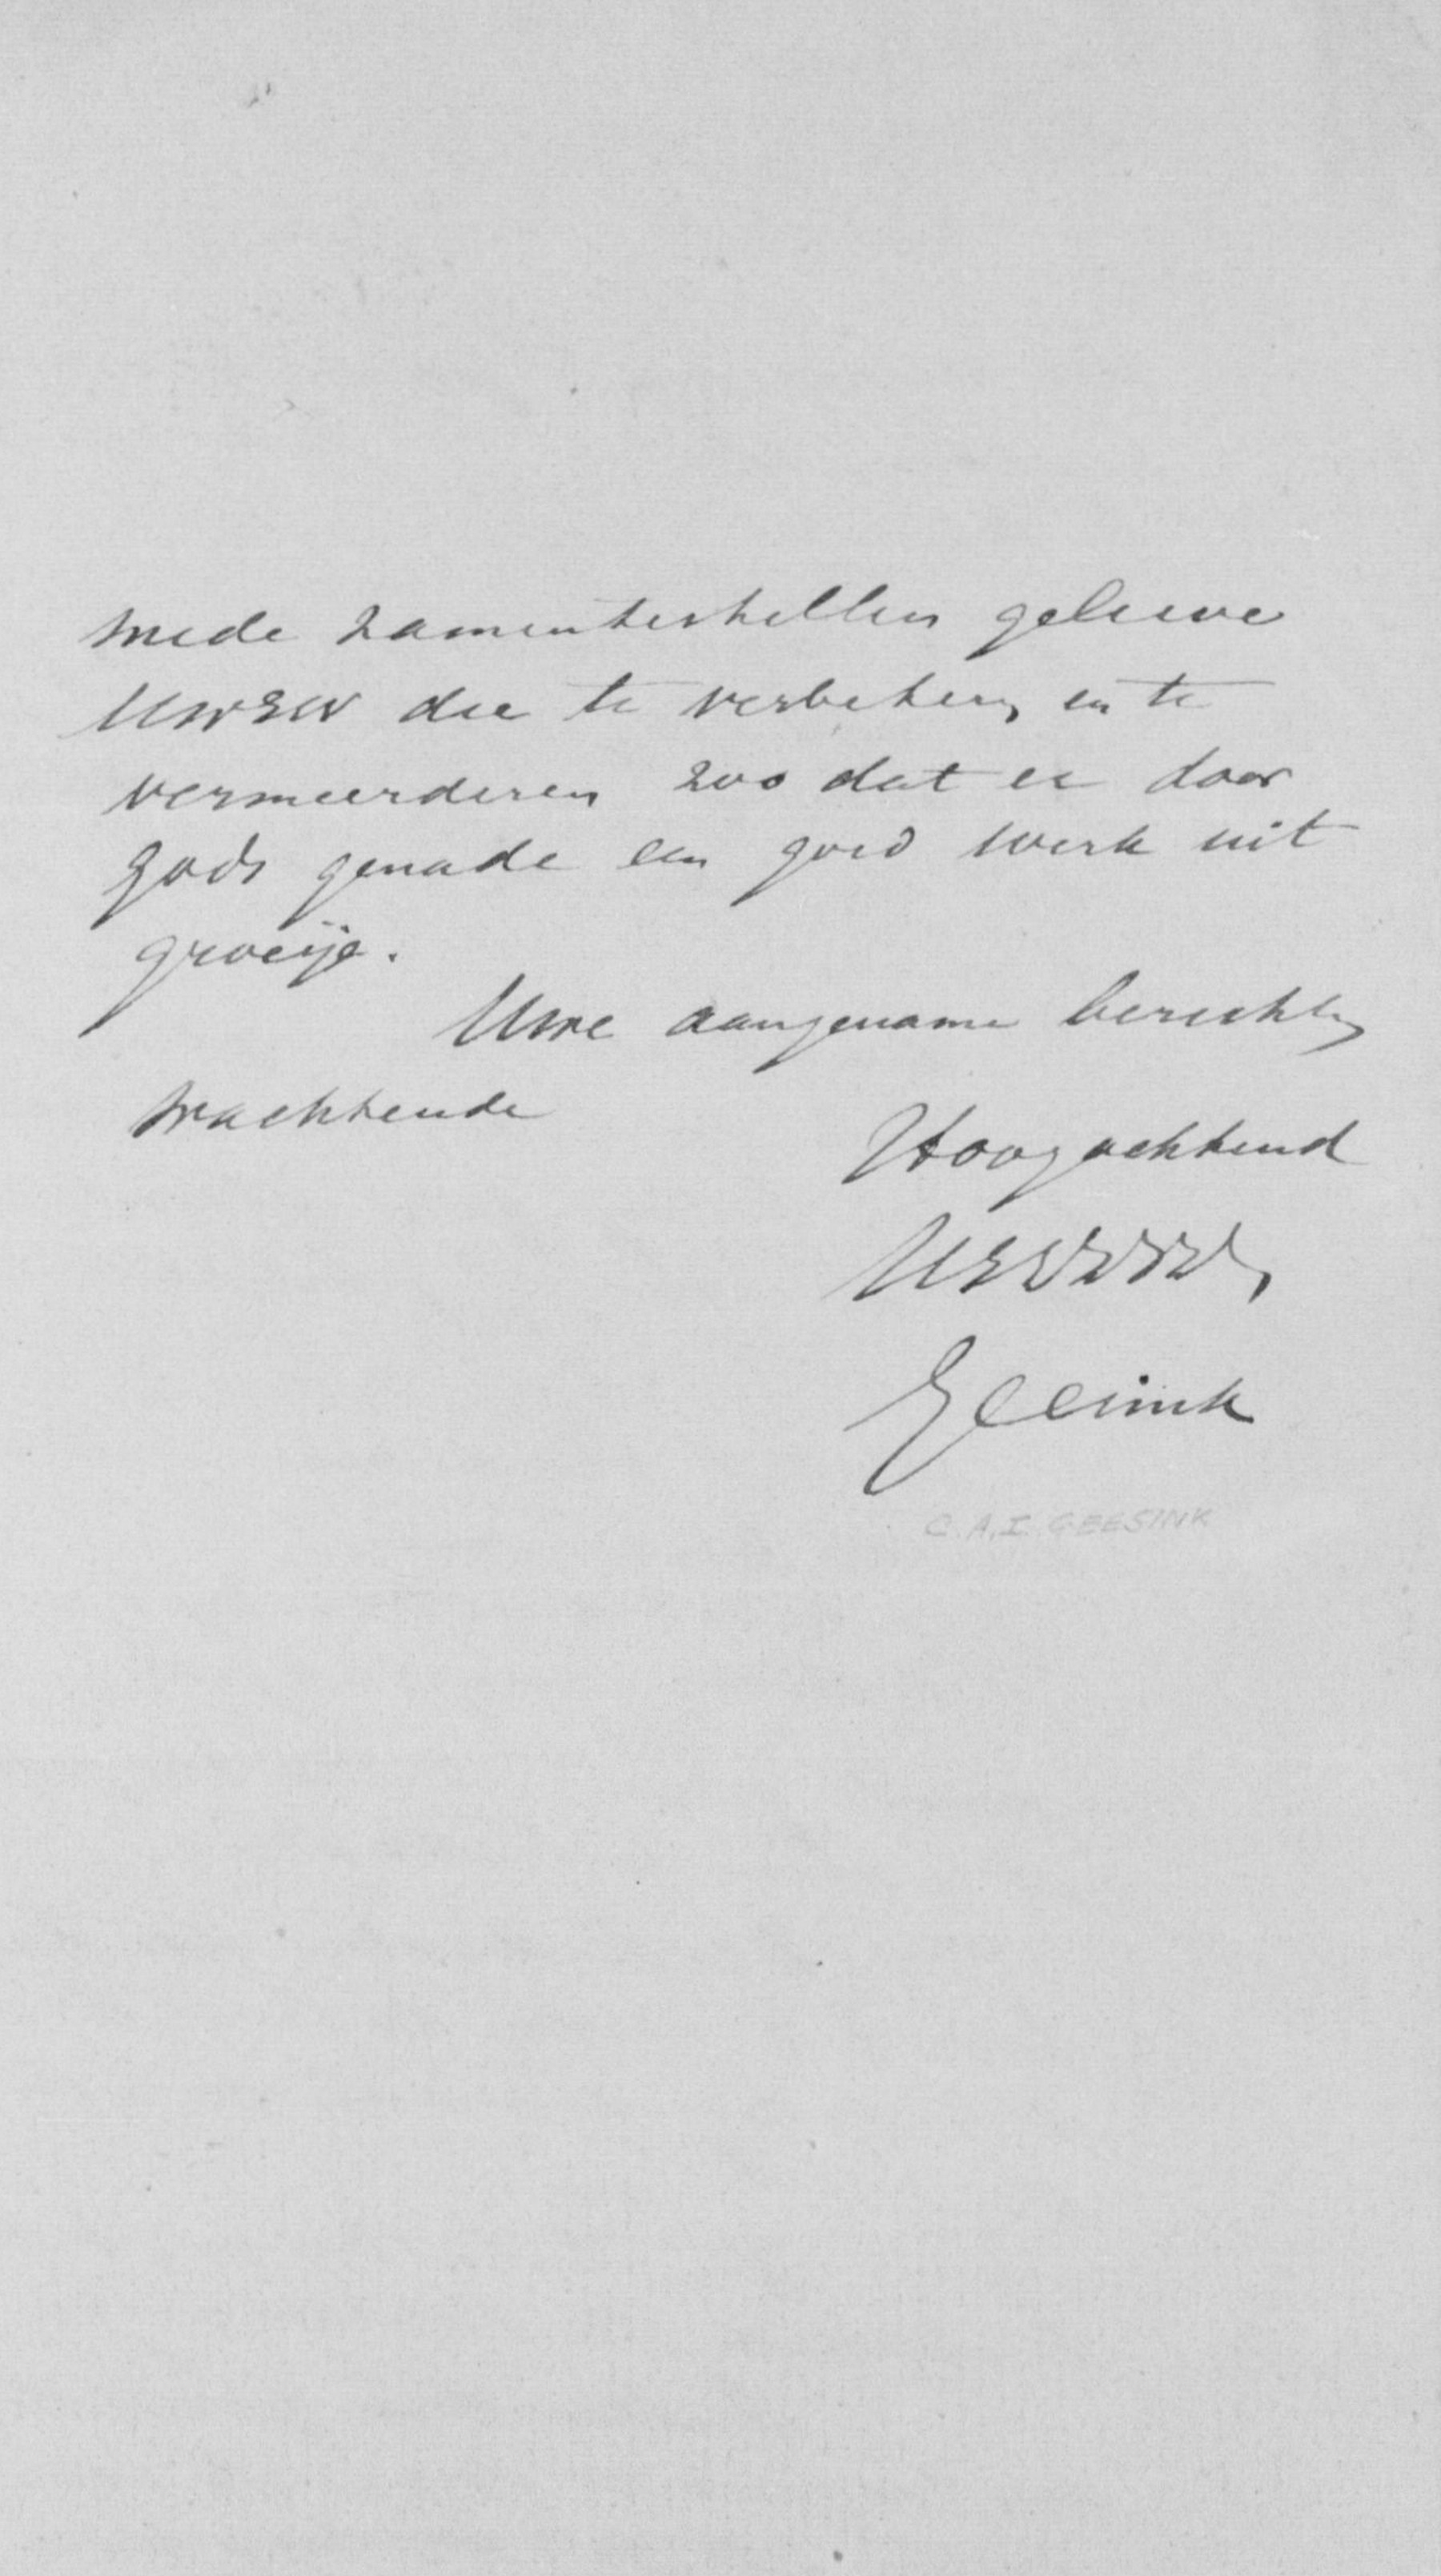 mede zamentestellen gelieve
UwEW die te verbeteren en te
vermeerderen zoo dat er door
gods genade een goed werk uit
groeije.
Uwe aangename berichten
wachtende
Hoogachtend
Geesink
C.A.I. GEESINK